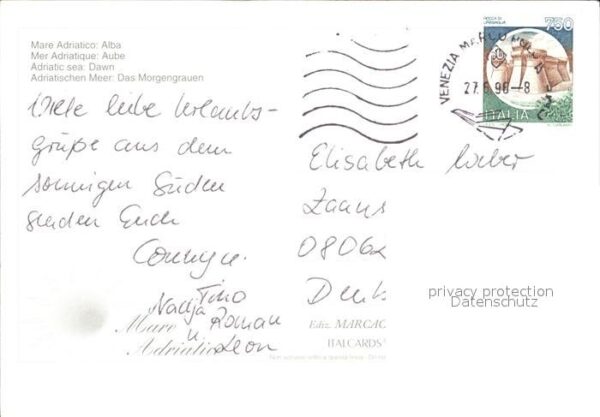 Mare Adriatico: Alba
Mer Adriatique: Aube
Adriatic sea: Dawn
Adriatischen Meer: Das Morgengrauen
Viele liebe Urlaubs-
grüße aus dem
sonnigen Süden
senden Euch
Tino
Nadja Roman
u. Leon
Mare
Adriatico
ROCCA DI
URBISAGLIA
750
ITALIA
VENEZIA MARCO POLO
27. 90-8
Elisabeth
Zaans
0806
Denk
privacy protection
Datenschutz
Ediz. MARCAC
ITALCARDS